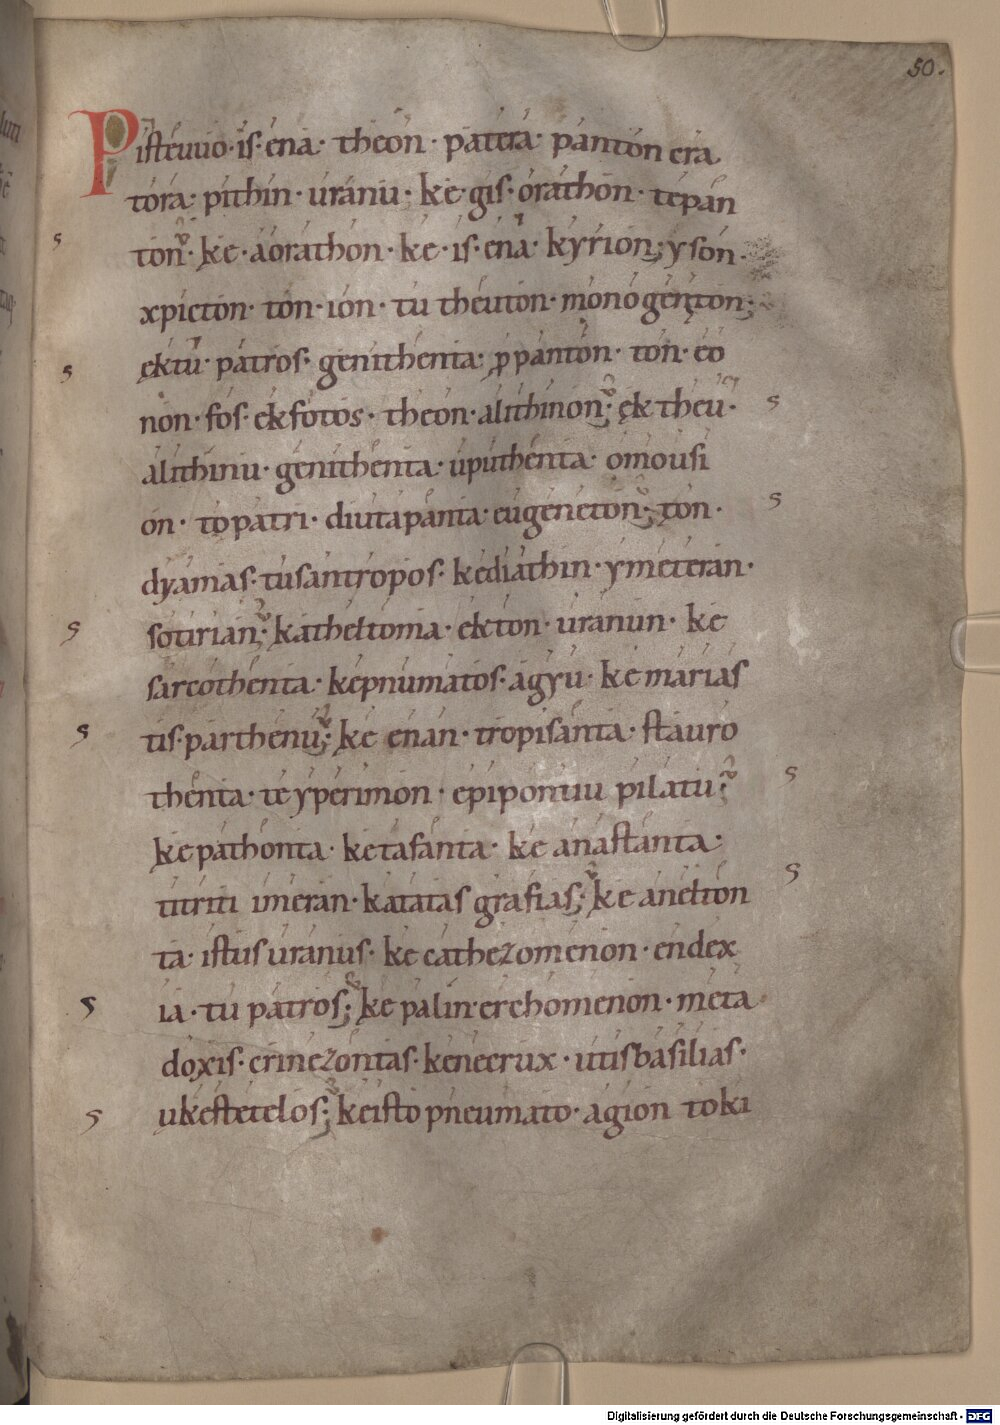 50.
Pisteuuio· is· ena· theon· patera· panton era
tora· pithin· uraniu· ke· gis· orathon· te pan
ton· ke· aorathon· ke· is· ena· kyrion; yson·
xpicton· ton· ion· tu theuton· monogenton;
ęktu· patros· genithenta· ꝓpanton· ton· eo
non· fos· ek fotos· theon· alithinon; ęk theu·
alithiniu· genithenta· uputhenta· omousi
on· to patri· diutapanta· eugeneton; ton·
dyamas· tus antropos· ke diathin· ymeteran·
sotirian; katheltoma· ekton· uranun· ke
sarcothenta· ke pnumatos· agyu· ke marias
tis· parthenu; ke enan· tropisanta· stauro
thenta· te yperimon· epi pontiu pilatu;
ke pathonta· ke tafanta· ke anastanta·
titriti imeran· katatas grafias; ke anelton
ta· istus uranus· ke cathezomenon· en dex
ia· tu patros; ke palin· erchomenon· meta
doxis· crinezontas· ke necrux· utis basilias·
uk este telos; ke isto pneumato· agion toki
s
s
s
s
s
s
s
s
s
s
Digitalisierung gefördert durch die Deutsche Forschungsgemeinschaft - DFG